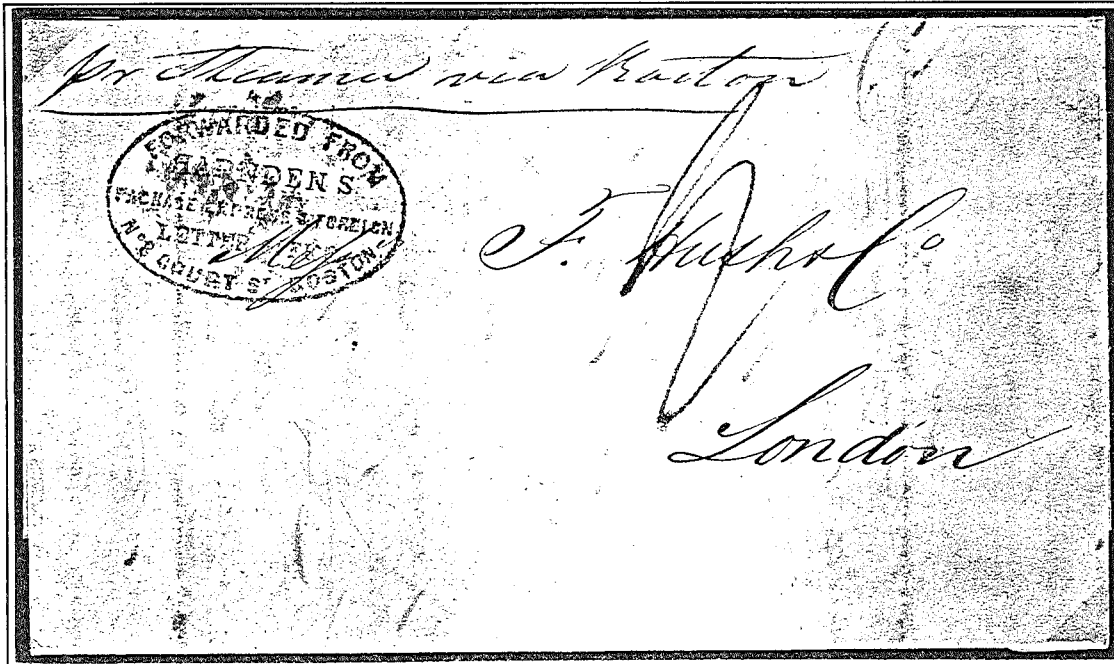 pr Steamer via Boston
FORWARDED FROM
HARNDEN'S
PACKAGE EXPRESS & FOREIGN
LETTER OFFICE
No 8 COURT ST BOSTON
F. Huth & Co
London